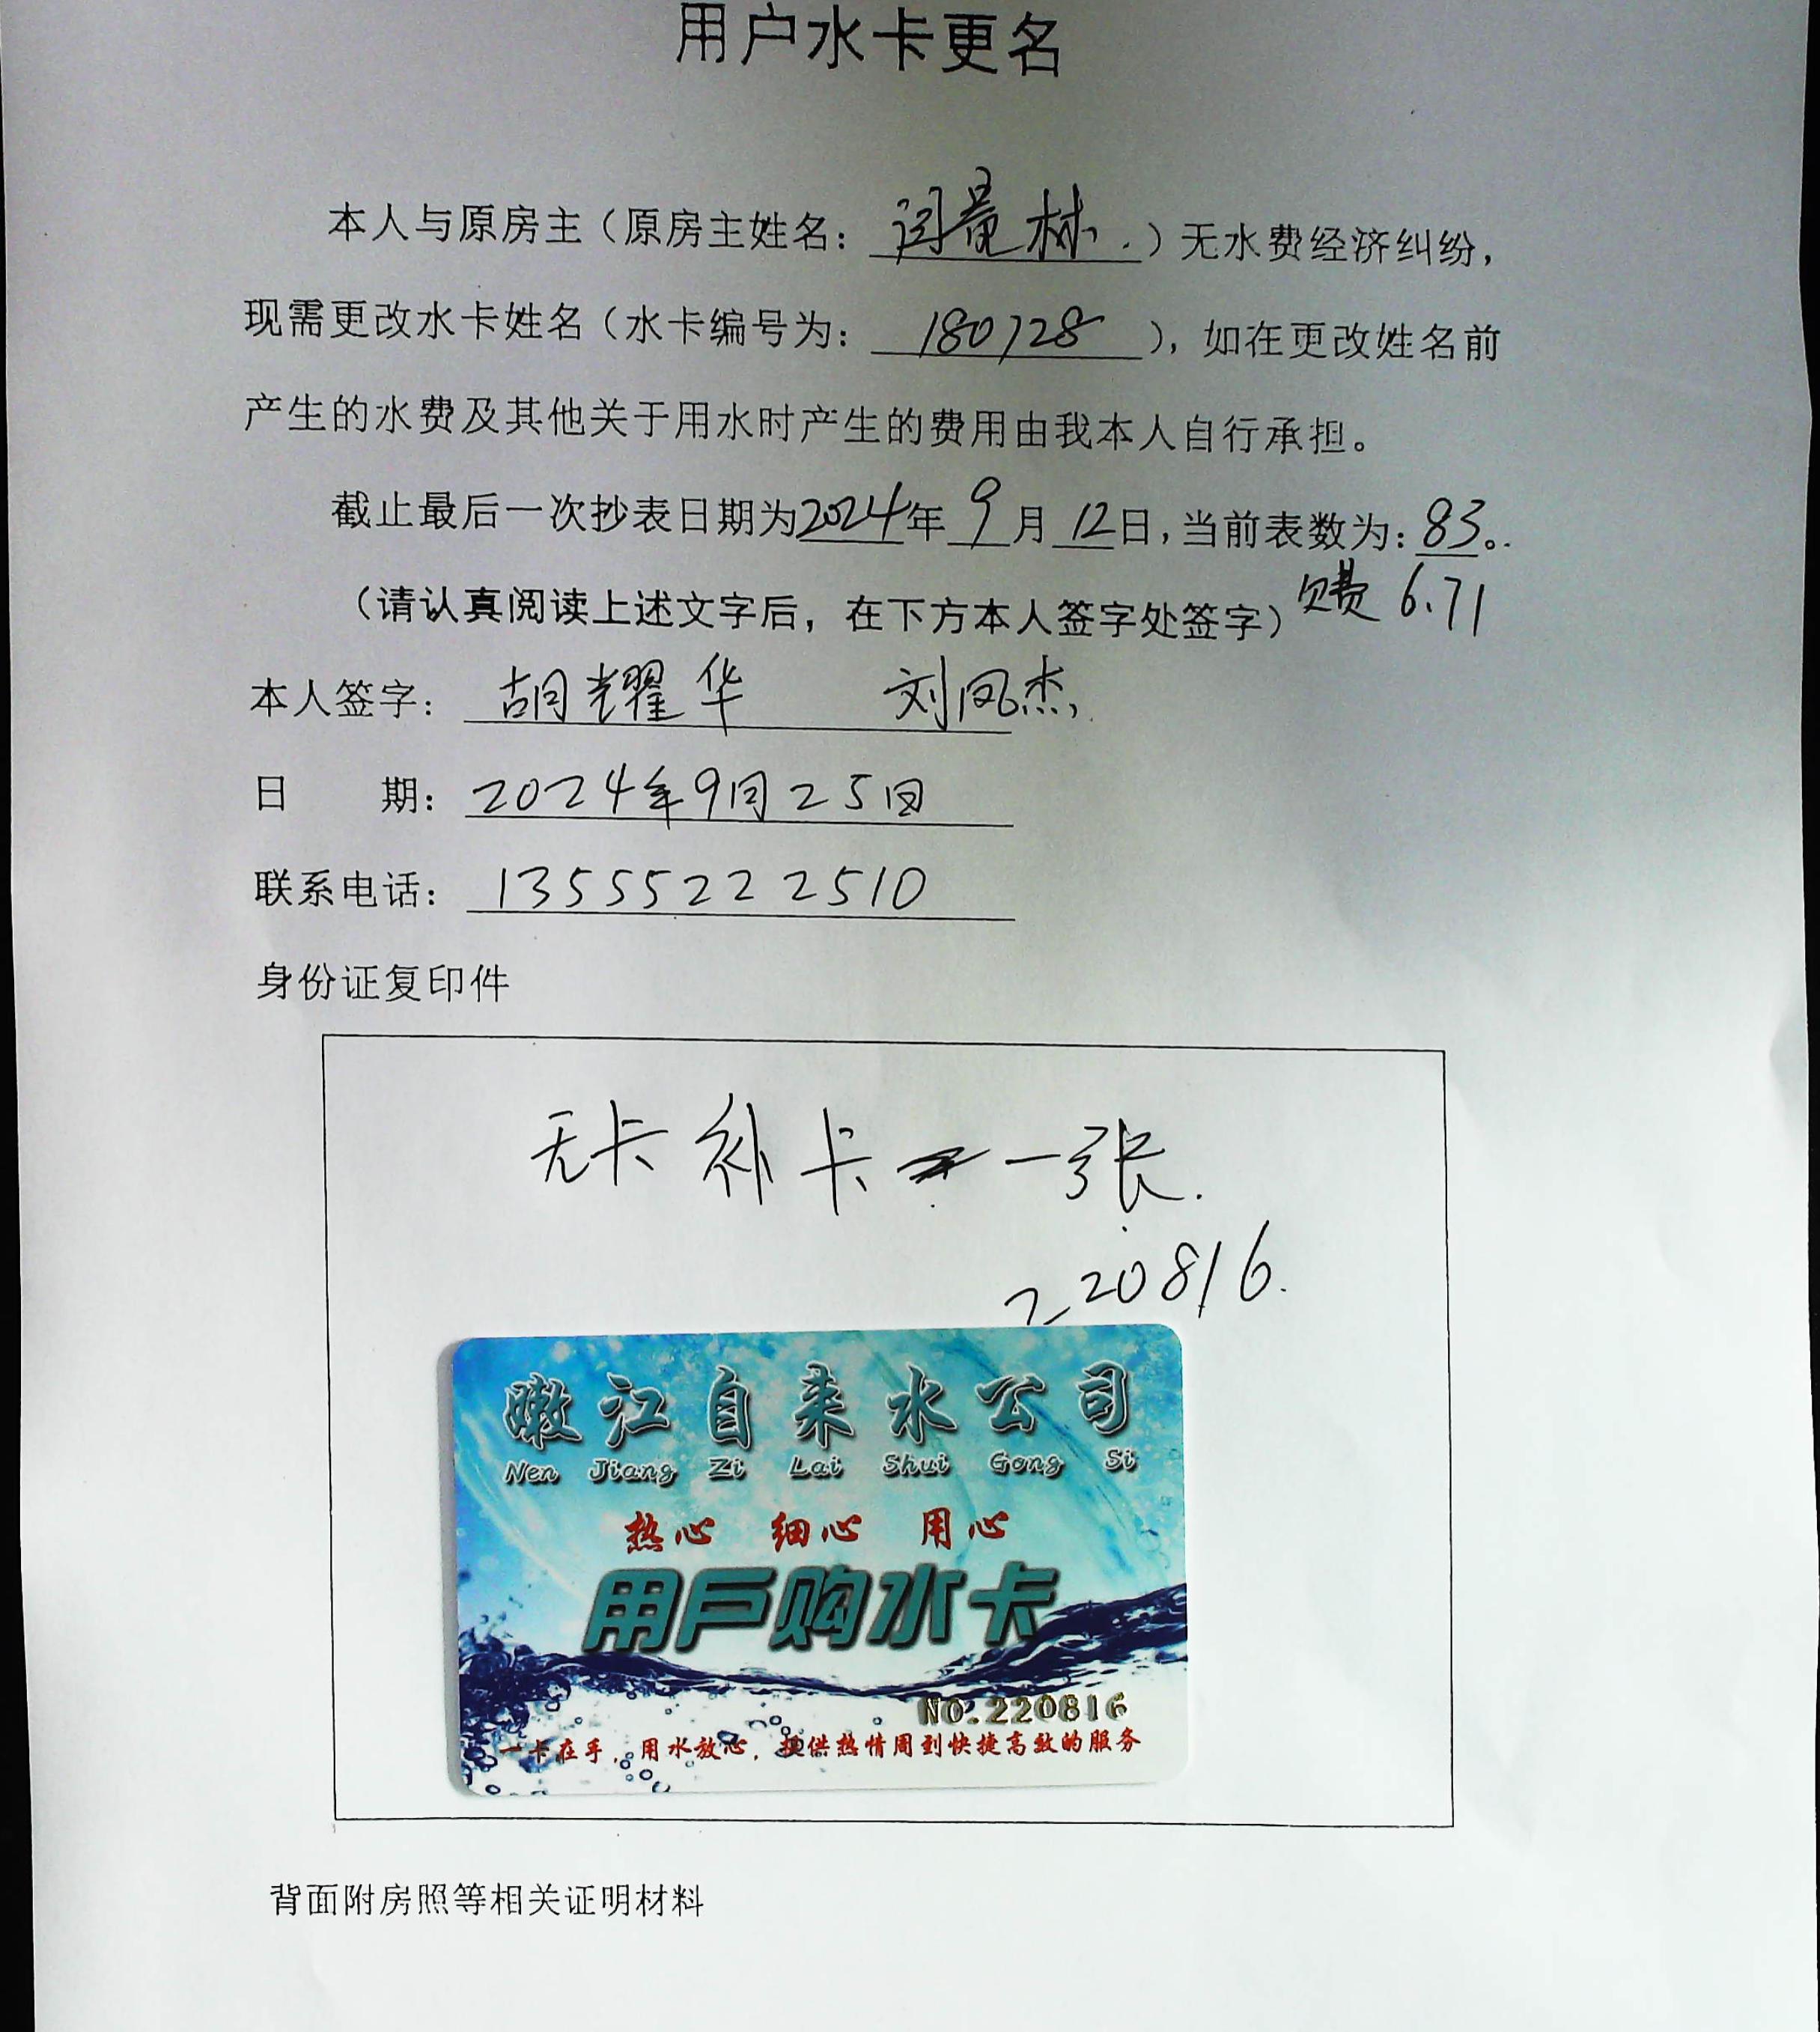 用户水卡更名
本人与原房主（原房主姓名：闫景林.）无水费经济纠纷，
现需更改水卡姓名（水卡编号为：180728），如在更改姓名前
产生的水费及其他关于用水时产生的费用由我本人自行承担。
截止最后一次抄表日期为2024年9月12日，当前表数为：83。
（请认真阅读上述文字后，在下方本人签字处签字）欠费 6.71
本人签字：胡耀华 刘凤杰
日 期：2024年9月25日
联系电话：13555222510
身份证复印件
无卡补卡一张.
220816.
嫩江自来水公司
Nen Jiang Zi Lai Shui Gong Si
热心 细心 用心
用户购水卡
NO.220816
一卡在手，用水放心，提供热情周到快捷高效的服务
背面附房照等相关证明材料